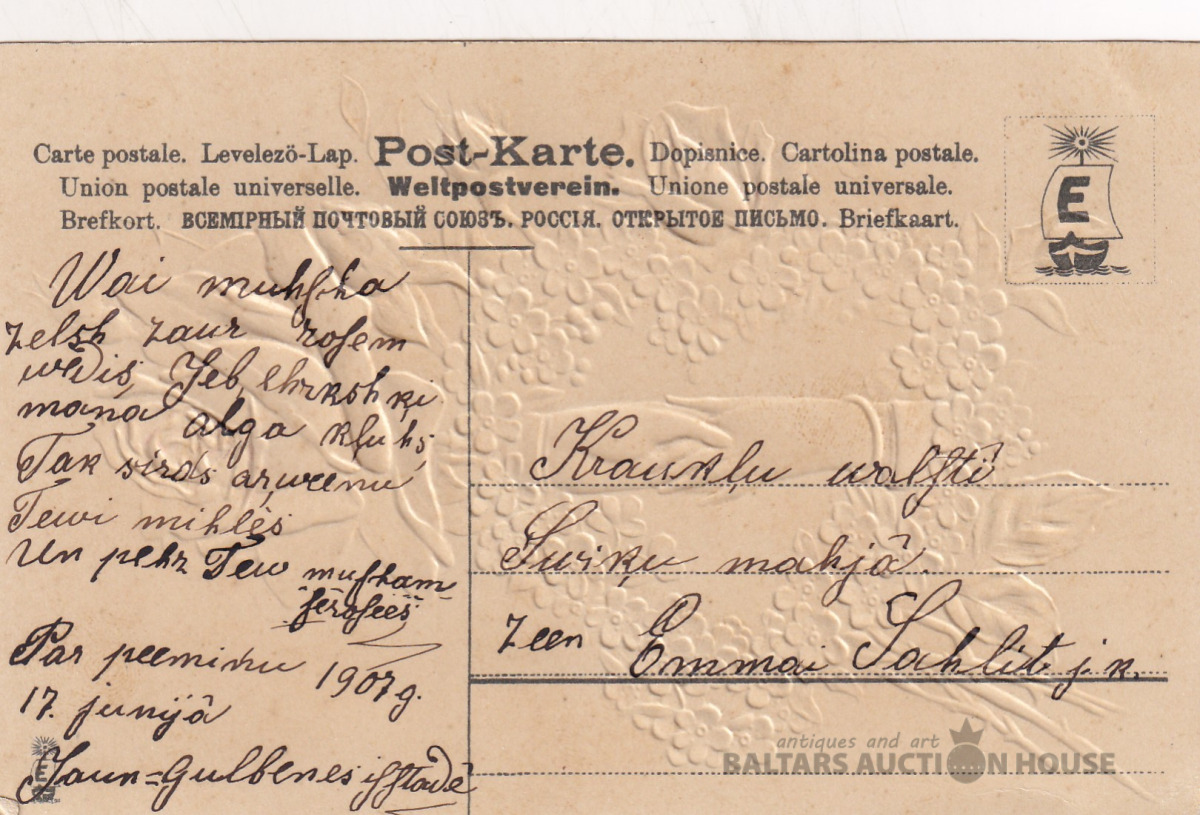 Carte postale. Levelezö-Lap. Post-Karte. Dopisnice. Cartolina postale.
Union postale universelle. Weltpostverein. Unione postale universale.
Brefkort. ВСЕМІРНЫЙ ПОЧТОВЫЙ СОЮЗЪ. РОССІЯ. ОТКРЫТОЕ ПИСЬМО. Briefkaart.
E
Wai muhſcha
zelsh zaur roſem
wedis,
Jeb ehrkshķi
mana alga kļuhs,
Tak sirds arweenu
Tewi mihlès
Un pehz Tew
Par peemiņu 1907 g.
17. junijâ
Jaun=Gulbenes
Kraukļu walſtî
mahjâ.
Zeen Emmai Sahlit j.k.
E
antiques and art
BALTARS AUCTION HOUSE